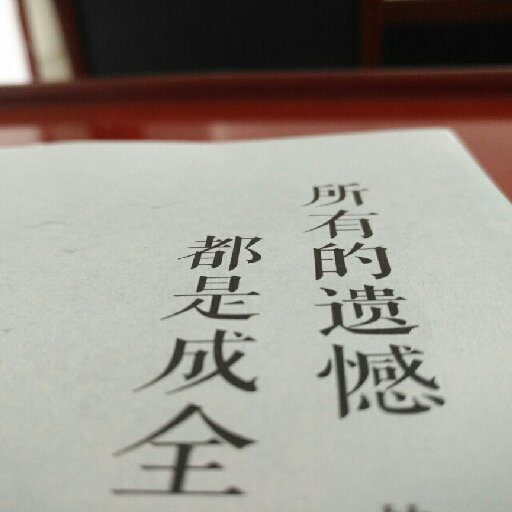 所有的遗憾
都是成全